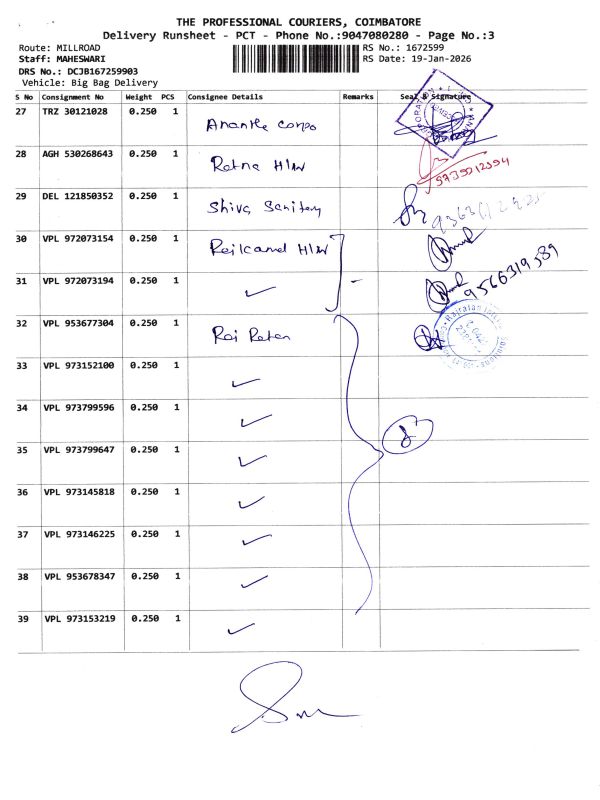 THE PROFESSIONAL COURIERS, COIMBATORE
Delivery Runsheet - PCT - Phone No.:9047080280 - Page No.:3
Route: MILLROAD RS No.: 1672599
Staff: MAHESWARI RS Date: 19-Jan-2026
DRS No.: DCJB167259903
Vehicle: Big Bag Delivery
S No Consignment No Weight PCS Consignee Details Remarks Seal & Signature
27 TRZ 30121028 0.250 1
28 AGH 530268643 0.250 1 Ratna H/W
9735012394
29 DEL 121850352 0.250 1 Shiva Sanitary
30 VPL 972073154 0.250 1
31 VPL 972073194 0.250 1 ✓ 9566319389
32 VPL 953677304 0.250 1 Raj Ratan
33 VPL 973152100 0.250 1 ✓
34 VPL 973799596 0.250 1 ✓
35 VPL 973799647 0.250 1 ✓
36 VPL 973145818 0.250 1 ✓
37 VPL 973146225 0.250 1 ✓
38 VPL 953678347 0.250 1 ✓
39 VPL 973153219 0.250 1 ✓